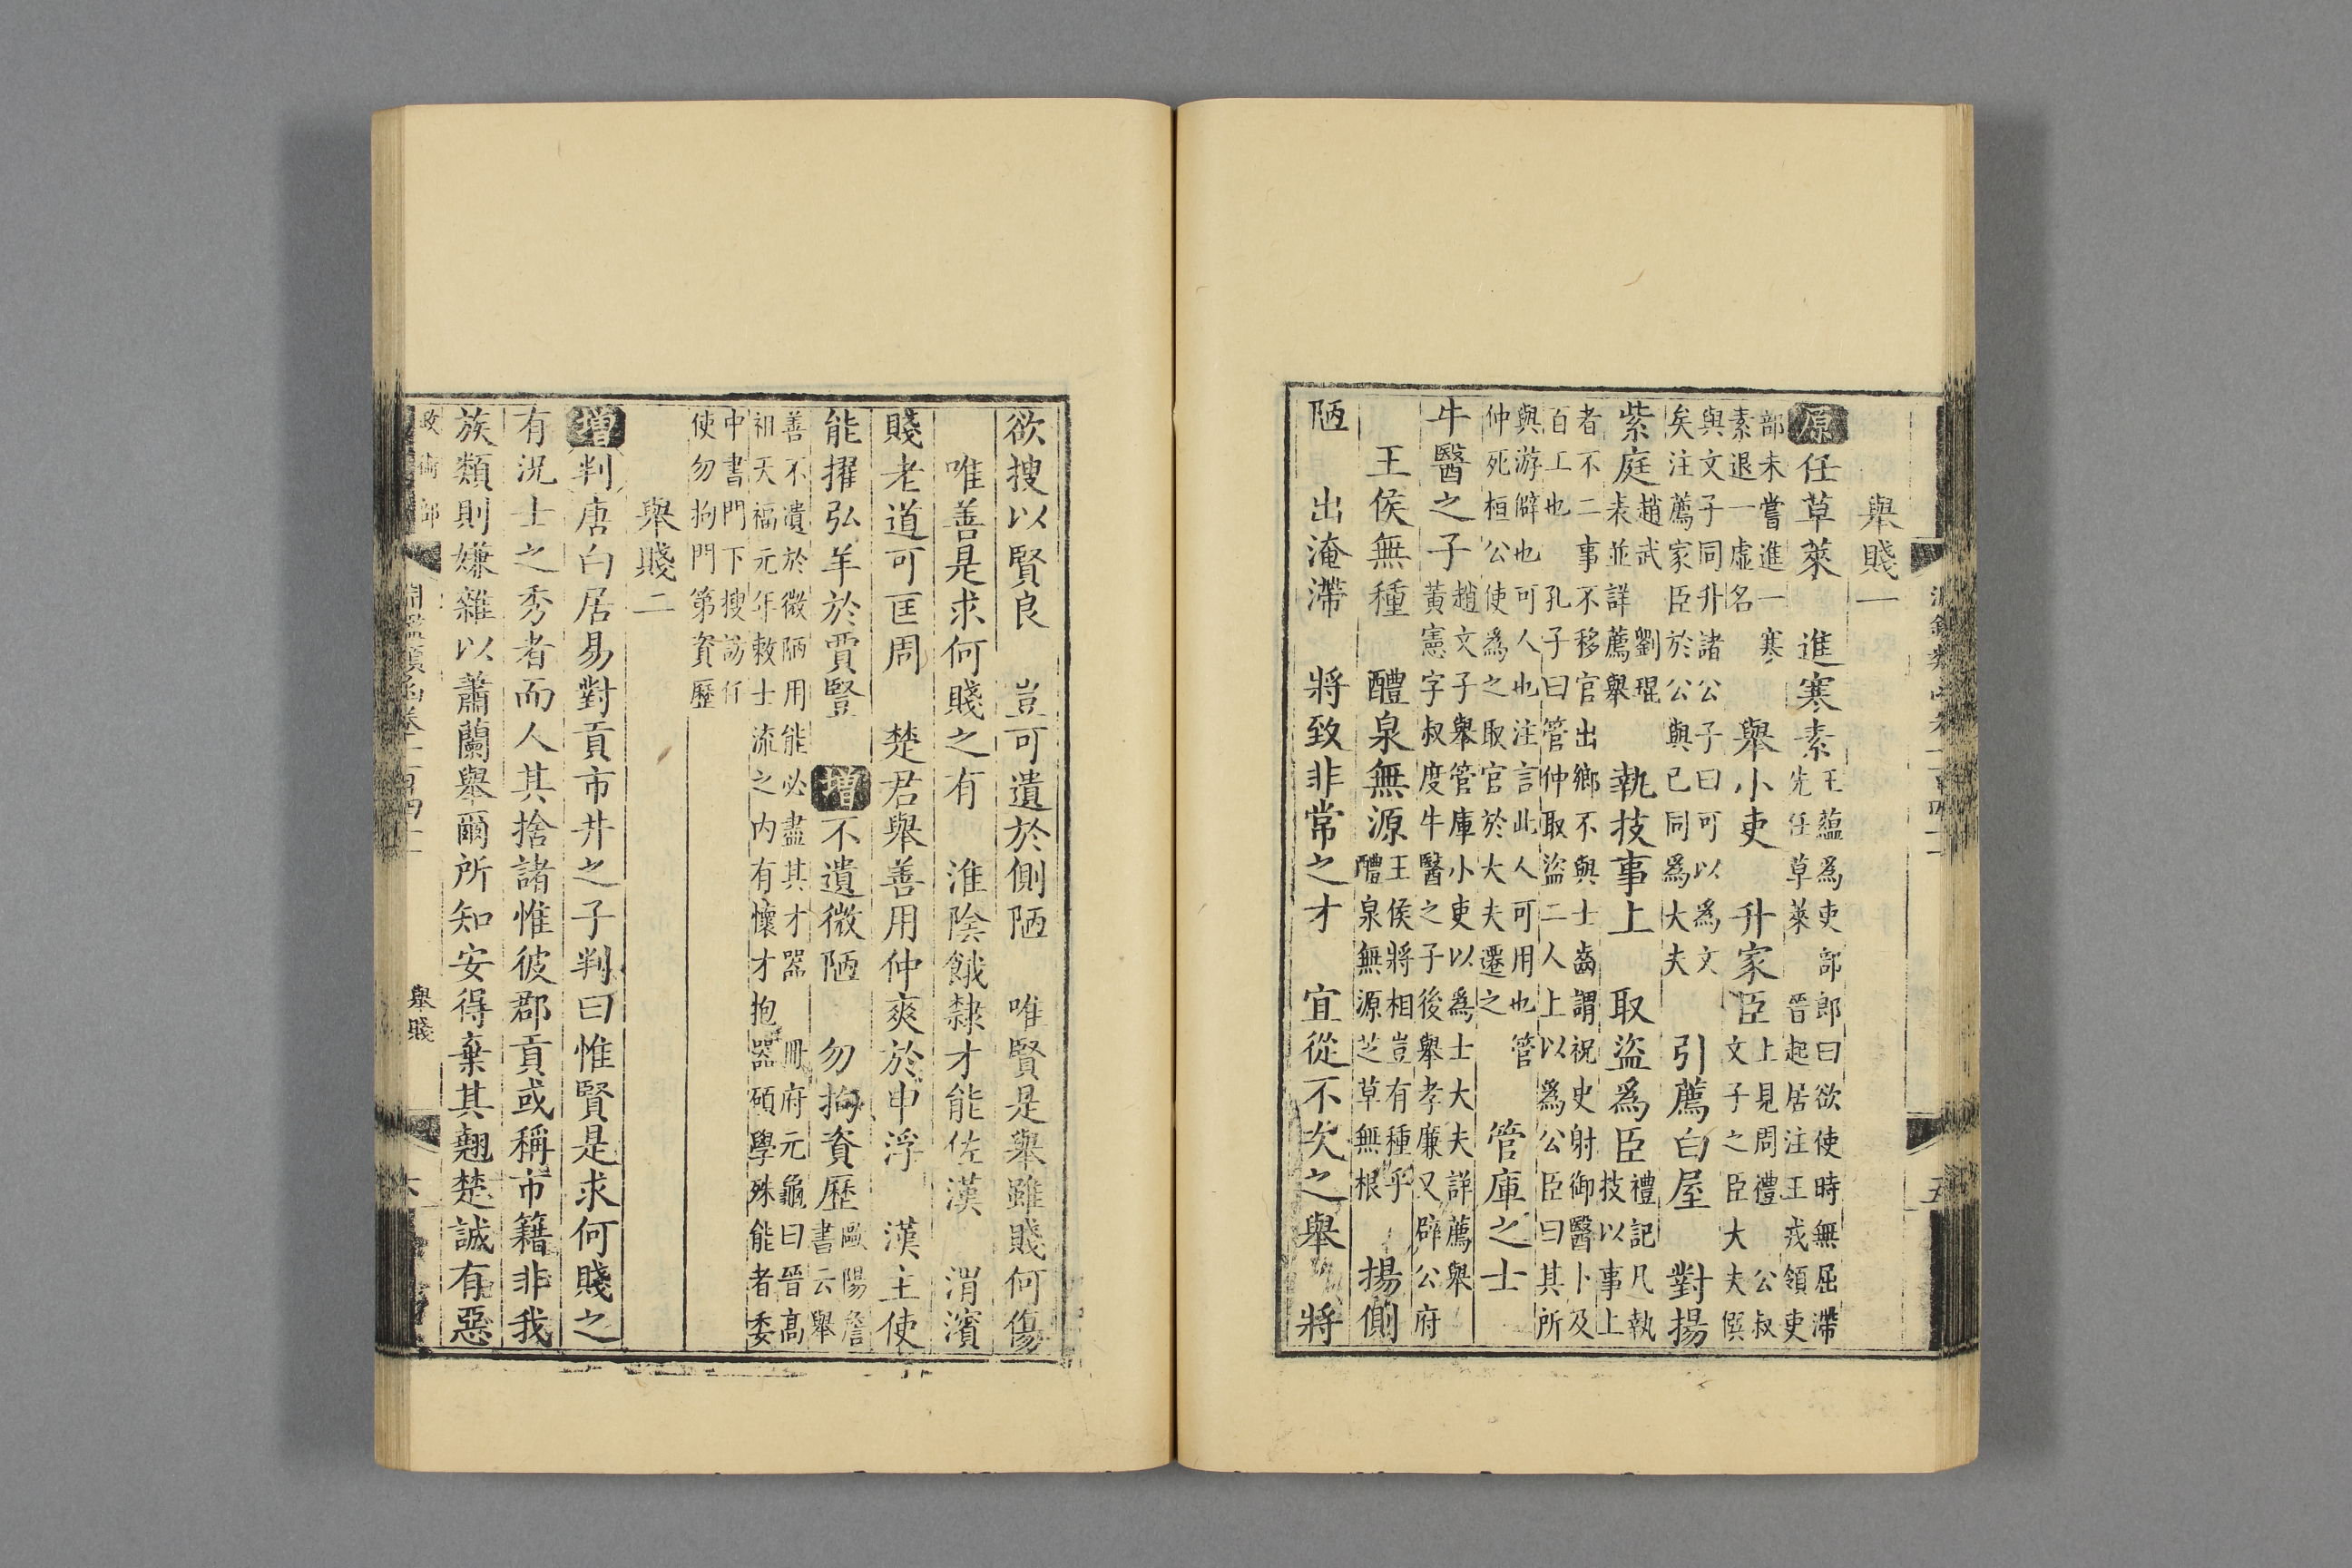 舉賤一
原任草萊　進寒素王蘊為吏部郎曰欲使時無屈滯先任草萊　晉起居注王戎領吏
部未嘗進一寒素退一虛名　舉小吏　升家臣上見問禮　公叔文子之臣大夫僎
與文子同升諸公子曰可以為文矣注薦家臣於公與已同為大夫　引薦白屋　對揚
紫庭趙武　劉琨表並詳薦舉　執技事上　取盜為臣禮記凡執技以事上
者不二事不移官出鄉不與士齒謂祝史射御醫卜及百工也　孔子曰管仲取盜二人上以為公臣曰其所
與游辟也可人也注言此人可用也管仲死桓公使為之取官於大夫遷之　管庫之士
牛醫之子趙文子舉管庫小吏以為士大夫詳薦舉黃憲字叔度牛醫之子後舉孝廉又辟公府
王侯無種　醴泉無源王侯將相豈有種乎醴泉無源芝草無根　揚側
陋　出淹滯　將致非常之才　宜從不次之舉　將
欲搜以賢良　豈可遺於側陋　唯賢是舉雖賤何傷
唯善是求何賤之有　淮陰餓隸才能佐漢　渭濱
賤老道可匡周　楚君舉善用仲爽於申浮　漢主使
能擢弘羊於賈豎　增不遺微陋　勿拘資歷歐陽詹書云舉
善不遺於微陋用能必盡其才器　冊府元龜曰晉高祖天福元年敕士流之内有懷才抱器碩學殊能者委
中書門下搜訪仍使勿拘門第資歷
舉賤二
增判唐白居易對貢市井之子判曰惟賢是求何賤之
有況士之秀者而人其捨諸惟彼郡貢或稱市籍非我
族類則嫌雜以蕭蘭舉爾所知安得棄其翹楚誠有惡
舉賤